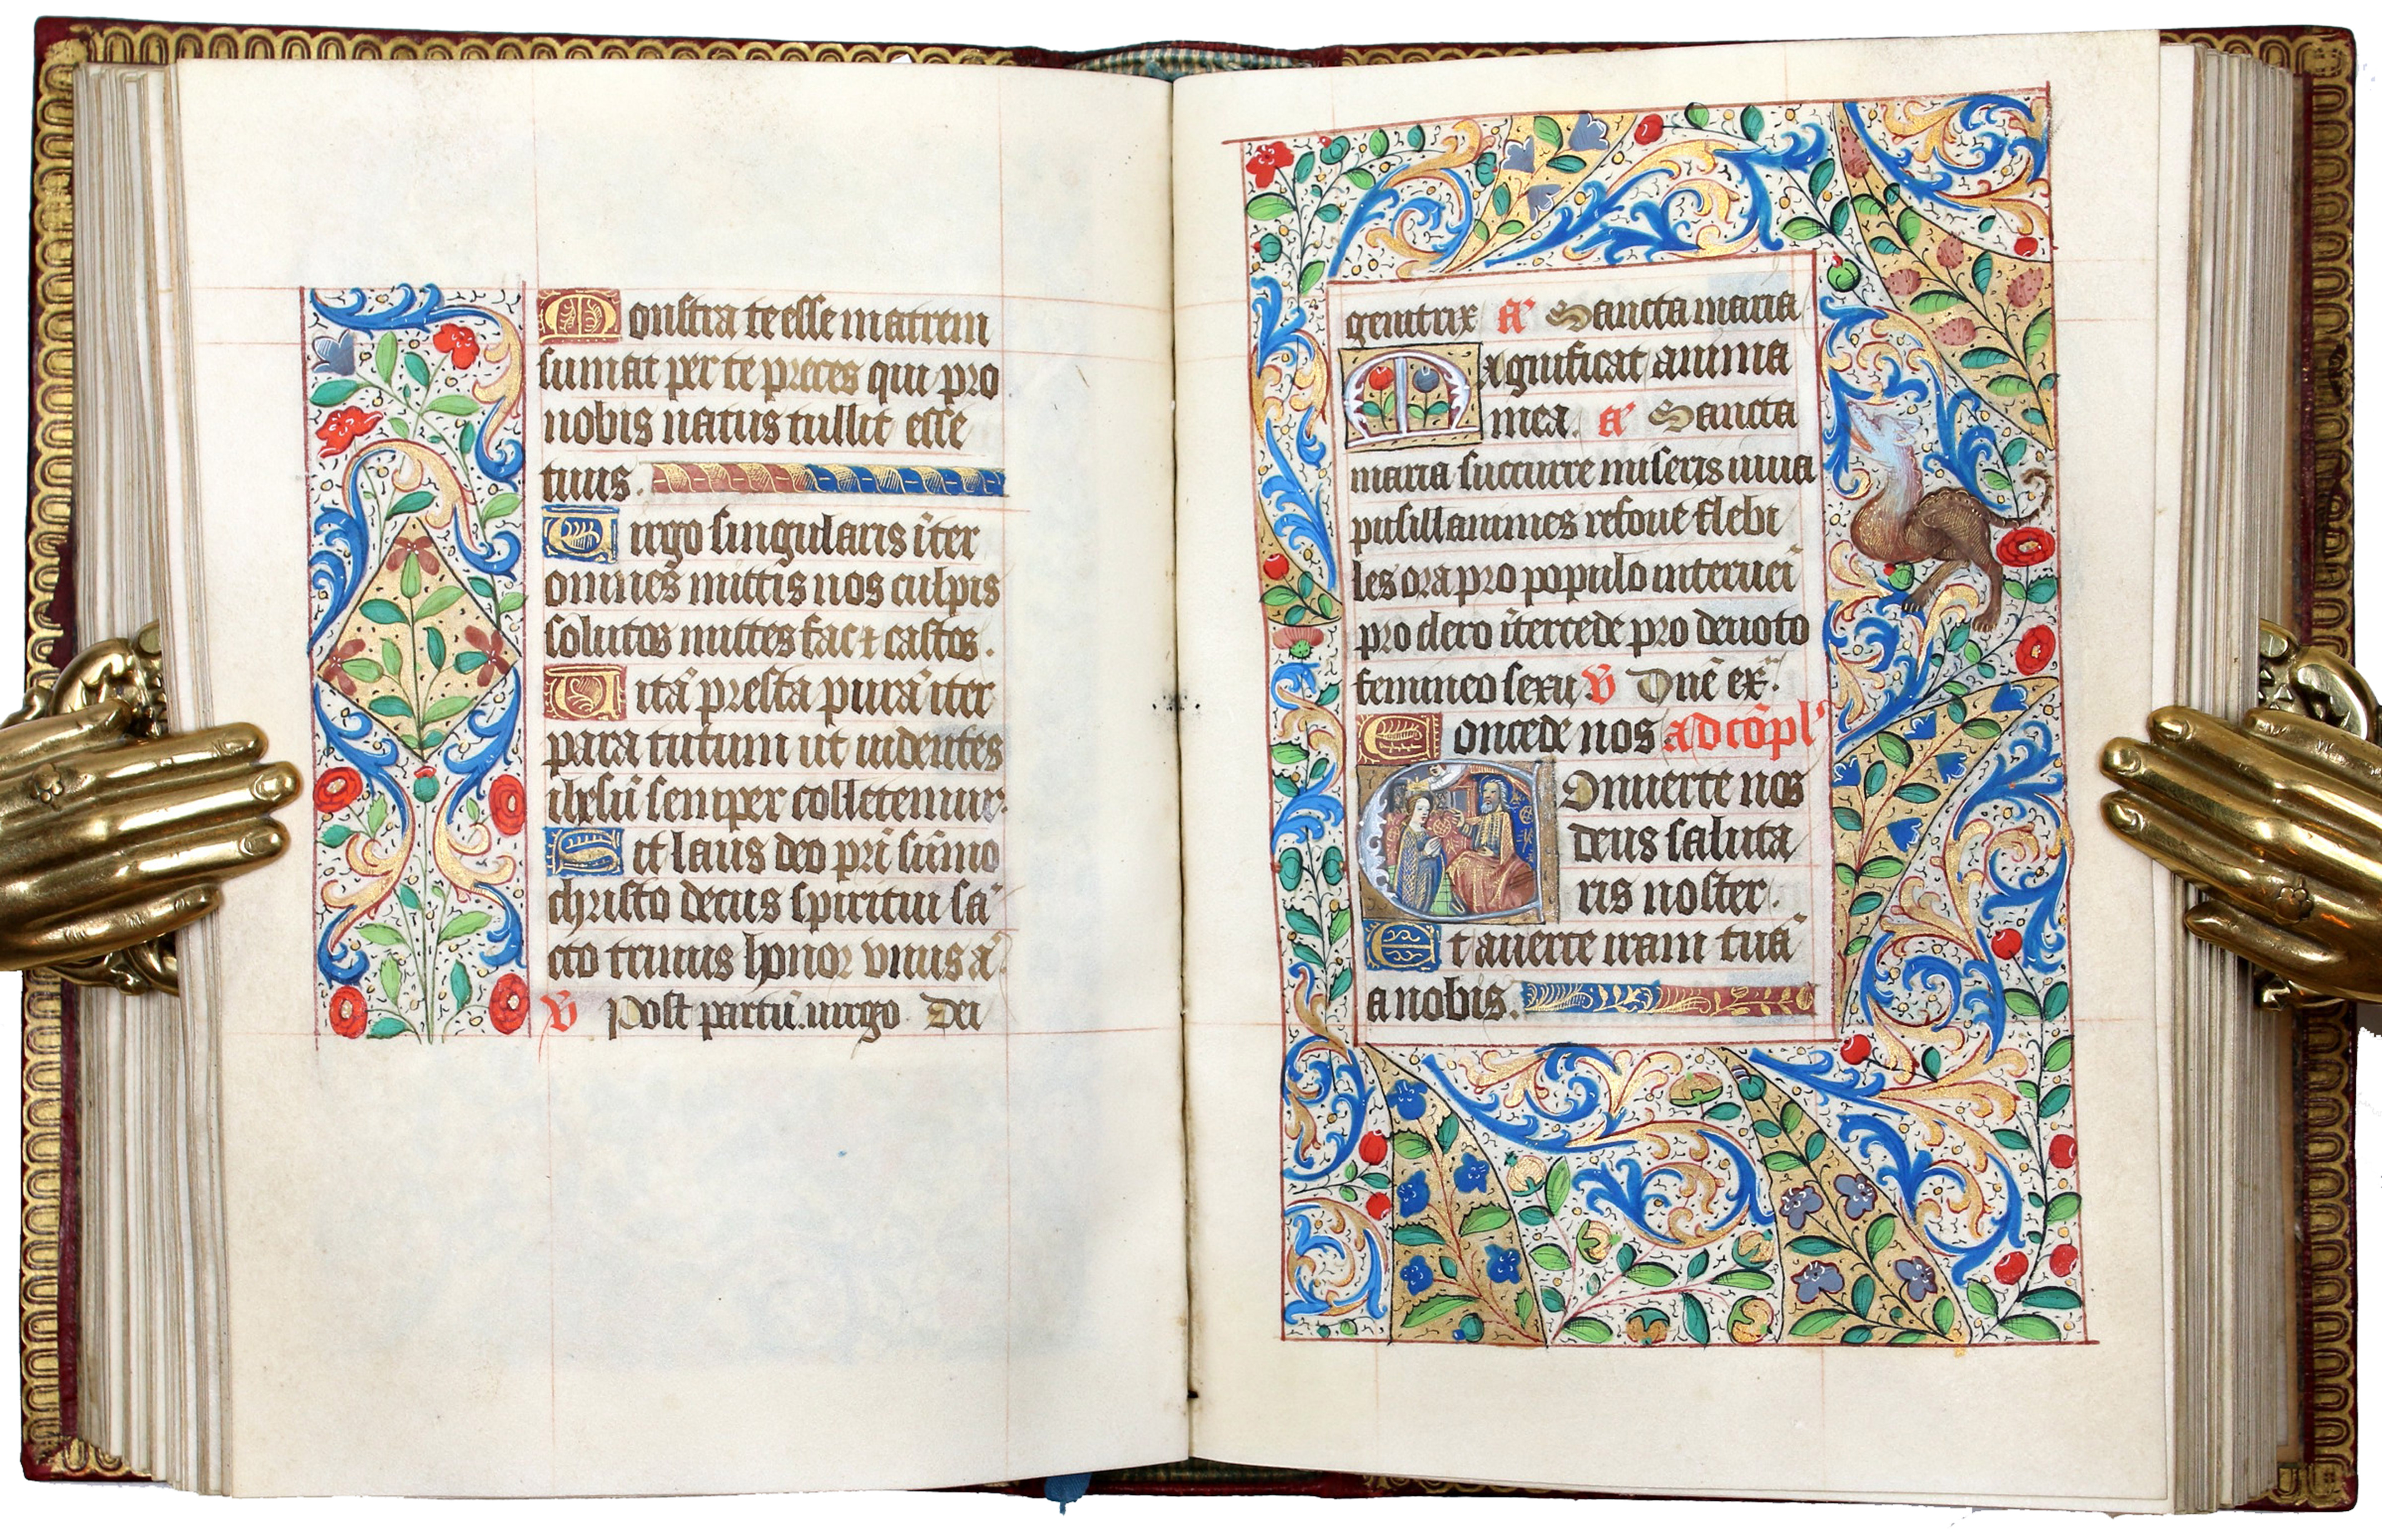 Monstra te esse matrem
sumat per te preces qui pro
nobis natus tullit esse
tuus.
Virgo singularis īter
omnes mittis nos culpis
solutos mittes fac ⁊ castos.
Vitā presta purā iter
para tutum ut uidentes
ihesū semper colletemur.
Sit laus deo pr̄i sūmo
christo decus spiritui sā
cto trinus honor vnus ā.
V̄ Post partū uirgo Dei
genitrix a᷒ Sancta maria
Magnificat anima
mea. a᷒ Sancta
maria succurre miseris iuua
pusillanimes refoue flebi
les ora pro populo interuēi
pro clero ītercede pro deuoto
femineo sexu V̄ Dn̄e ex̄.
Concede nos ad cōpl᷒
Conuerte nos
deus saluta
ris noster.
Et auerte iram tuā
a nobis.